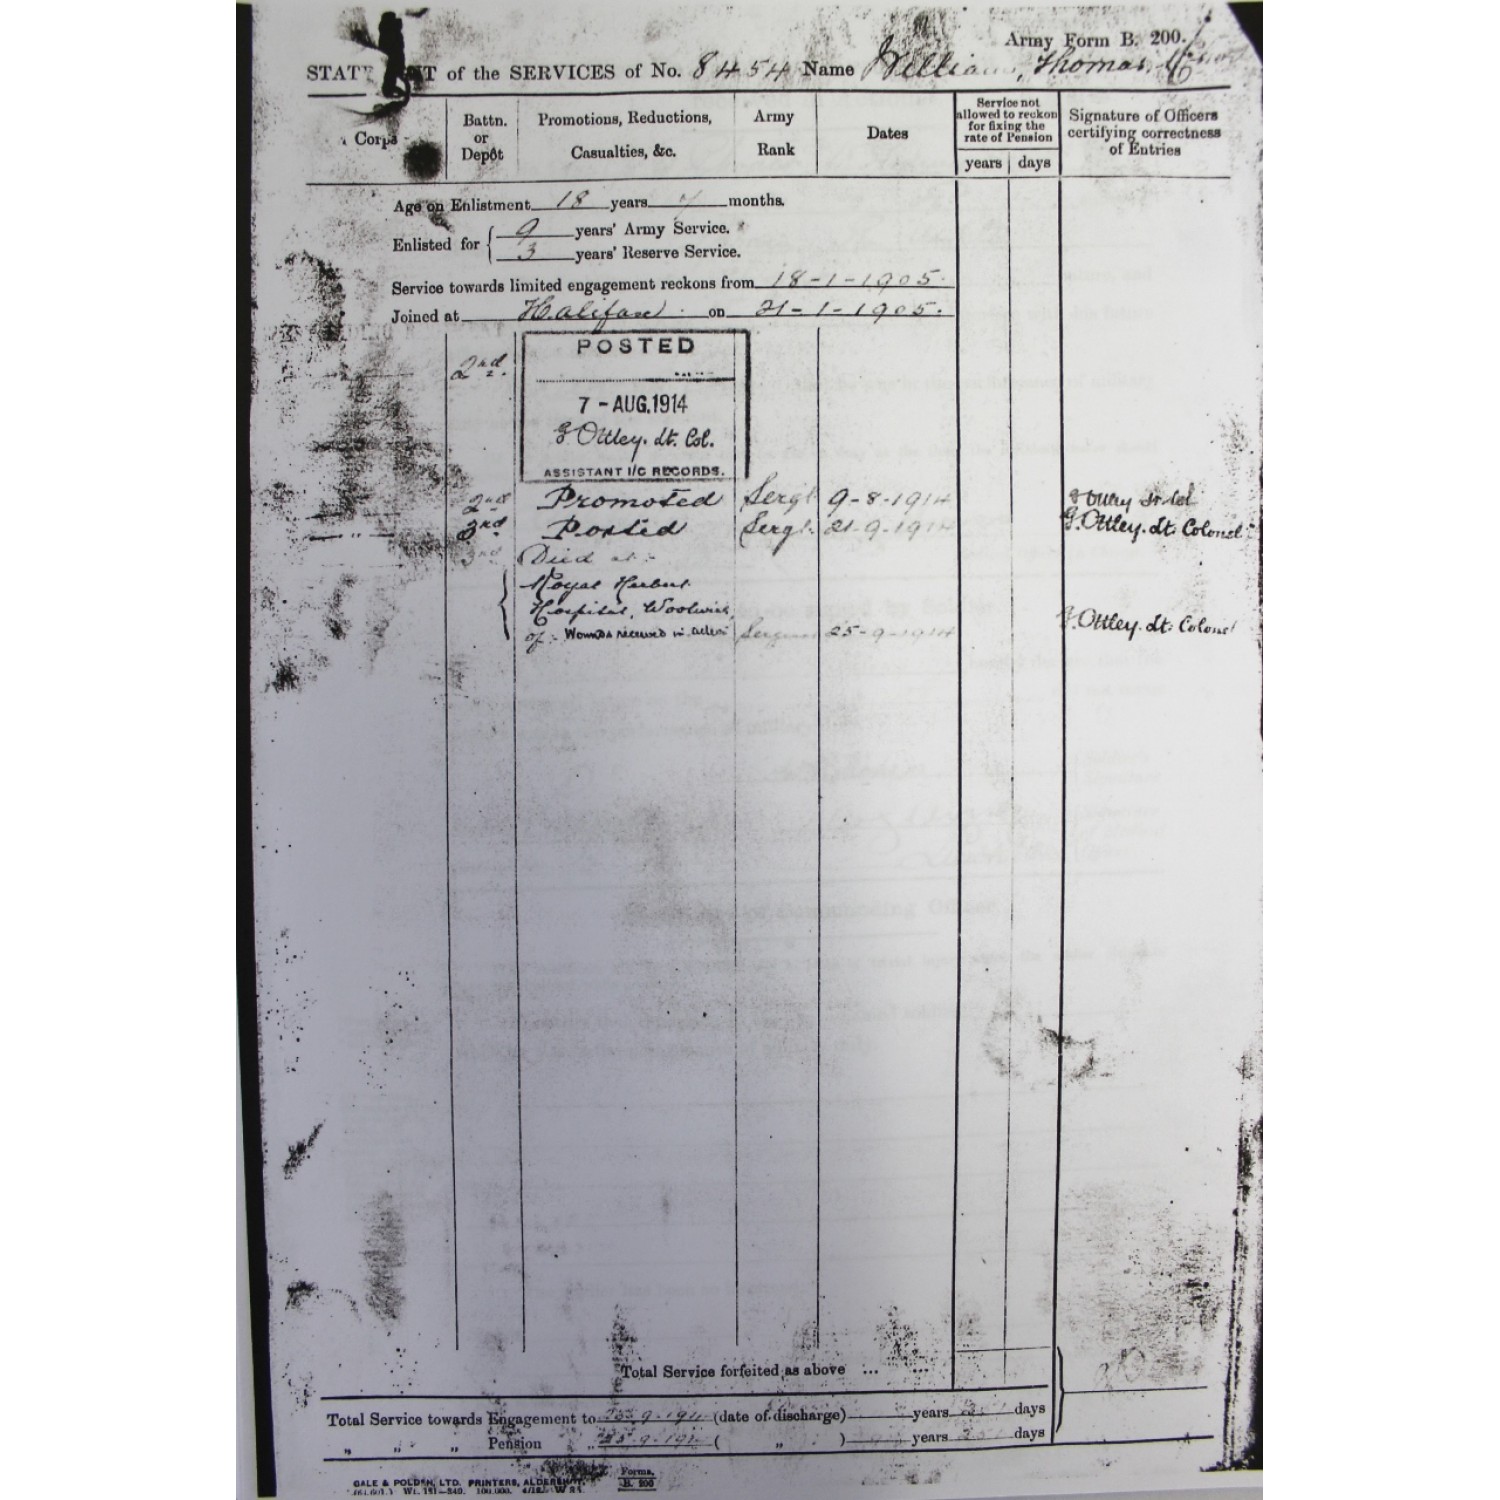 Army Form B. 200.
STATE T of the SERVICES of No. 8454 Name William, Thomas,
Corps
Battn. or Depôt
Promotions, Reductions, Casualties, &c.
Army Rank
Dates
Service not allowed to reckon for fixing the rate of Pension
years days
Signature of Officers certifying correctness of Entries
Age on Enlistment 18 years months.
Enlisted for 9 years' Army Service.
3 years' Reserve Service.
Service towards limited engagement reckons from 18-1-1905.
Joined at Halifax on 21-1-1905.
2nd. POSTED
7-AUG.1914
G Ottley. Lt. Col.
ASSISTANT I/C RECORDS.
2nd Promoted Sergt 9-8-1914 G Ottley Lt. Col
" 3rd. Posted Sergt. 21-9-1914 G. Ottley. Lt. Colonel
3rd Died at :-
Royal Herbert
Hospital, Woolwich,
of :- Wounds received in action Sergeant 25-9-1914 G. Ottley. Lt. Colonel
Total Service forfeited as above ... ...
Total Service towards Engagement to 25.9.191 (date of discharge) years days
" " " Pension " 25.9.191 ( " ) years days
GALE & POLDEN, LTD. PRINTERS, ALDERSHOT.
Forms,
B. 200